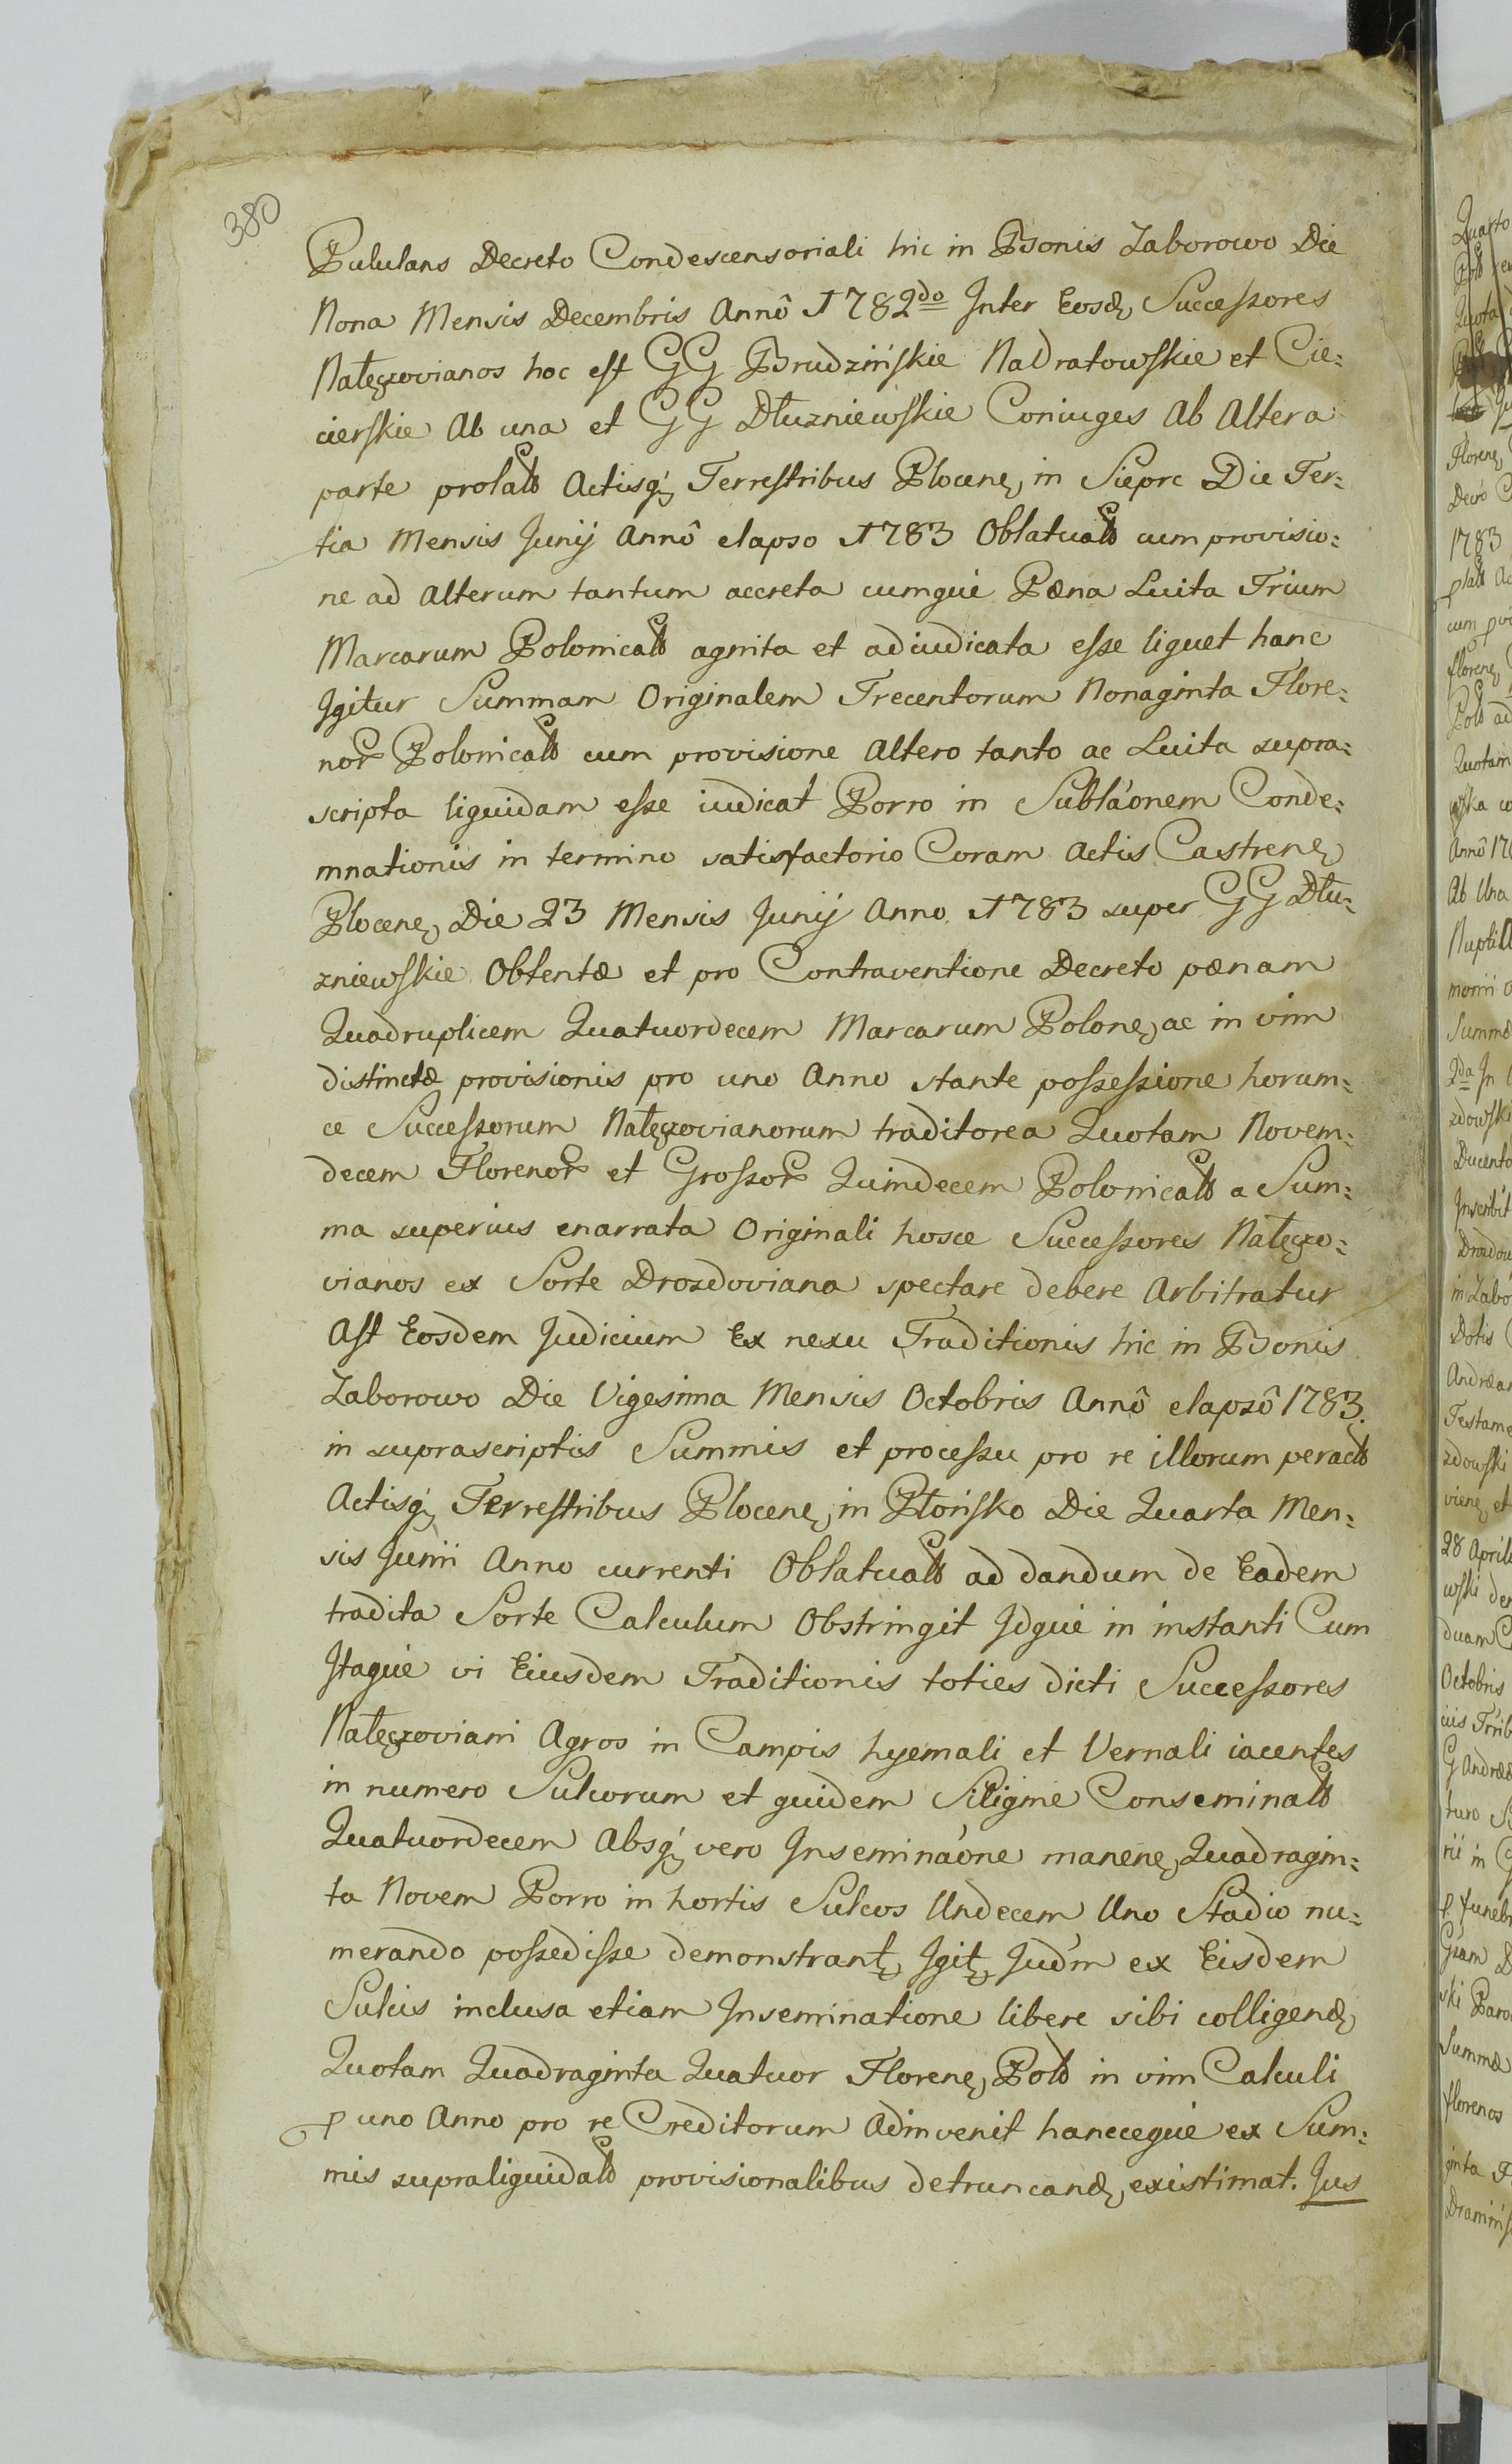 380
Pululans Decreto Condescensoriali hic in Bonis Zaborowo Die
Nona Mensis Decembris Annô 1782do Inter Eosd, Successores
Nałęczovianos hoc est GG Brudzińskie Nadratowskie et Cie:
cierskie Ab una et GG Dłuzniewskie Coniuges Ab Altera
parte prolat Actisq, Terrestribus Plocen, in Sieprc Die Ter:
tia Mensis Junij Annô elapso 1783 Oblatuat cum provisio:
ne ad Alterum tantum accreta cumque Pæna Luita Trium
Marcarum Polonicat agnita et adiudicata esse liquet hanc
Igitur Summam Originalem Trecentorum Nonaginta Flore:
nor Polonicat cum provisione Altero tanto ac Luita supra:
scripta liquidam esse iudicat Porro in Subláonem Conde:
mnationis in termino satisfactorio Coram Actis Castren,
Plocen, Die 23 Mensis Junij Anno 1783 super GG Dłu:
zniewskie Obtentæ et pro Contraventione Decreto pænam
Quadruplicem Quatuordecem Marcarum Polon, ac in vim
distinctæ provisionis pro uno Anno stante possessione horum:
ce Successorum Nałęczovianorum traditorea Quotam Novem:
decem Florenor et Grossor Quindecem Polonicat a Sum:
ma superius enarrata Originali hosce Successores Nałęczo:
vianos ex Sorte Drozdoviana spectare debere Arbitratur
Ast Eosdem Judicium Ex nexu Traditionis hic in Bonis
Zaborowo Die Vigesima Mensis Octobris Annô elapsô 1783.
in suprascriptis Summis et processu pro re illorum peract
Actisq, Terrestribus Plocen, in Płońsko Die Quarta Men:
sis Junii Anno currenti Oblatuat ad dandum de Eadem
tradita Sorte Calculum Obstringit Idque in instanti Cum
Itaque vi Eiusdem Traditionis toties dicti Successores
Nałęczoviani Agros in Campis hyemali et Vernali iacentes
in numero Sulcorum et quidem Siligine Conseminat
Quatuordecem Absq, vero Inseminaóne manen, Quadragin:
ta Novem Porro in hortis Sulcos Undecem Uno Stadio nu:
merando possedisse demonstrant, Igit, Judm ex Eisdem
Sulcis inclusa etiam Inseminatione libere sibi colligend,
Quotam Quadraginta Quatuor Floren, Pol in vim Calculi
p uno Anno pro re Creditorum Adinvenit hanceque ex Sum:
mis supraliquidat provisionalibus detruncand, existimat. Jus